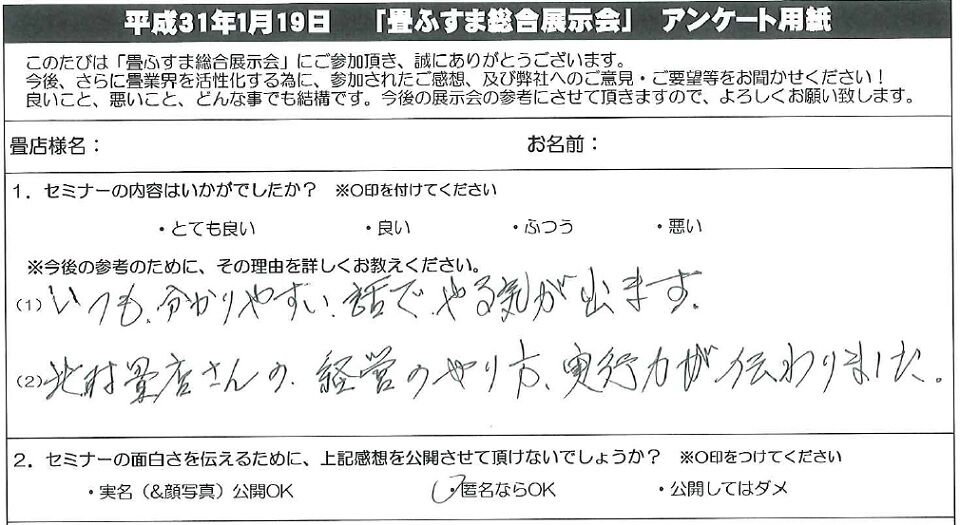 平成31年1月19日 「畳ふすま総合展示会」 アンケート用紙
このたびは「畳ふすま総合展示会」にご参加頂き、誠にありがとうございます。
今後、さらに畳業界を活性化する為に、参加されたご感想、及び弊社へのご意見・ご要望等をお聞かせください！
良いこと、悪いこと、どんな事でも結構です。今後の展示会の参考にさせて頂きますので、よろしくお願い致します。
畳店様名： お名前：
1．セミナーの内容はいかがでしたか？ ※○印を付けてください
・とても良い ・良い ・ふつう ・悪い
※今後の参考のために、その理由を詳しくお教えください。
(1) いつも、分かりやすい、話で、やる気が出ます。
(2) 北村畳店さんの、経営のやり方、実行力が伝わりました。
2．セミナーの面白さを伝えるために、上記感想を公開させて頂けないでしょうか？ ※○印をつけてください
・実名（&顔写真）公開OK ・匿名ならOK ・公開してはダメ